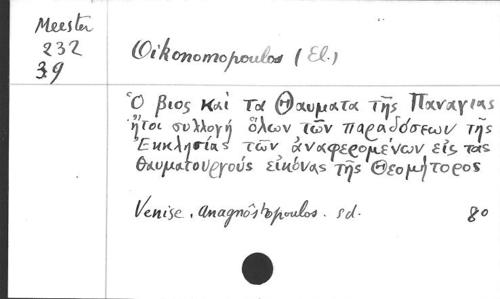 Meester
232
39
Oikonomopoulos (El.)
Ὁ βιος καὶ τα Θαυματα τῆς Παναγιας
ἤτοι συλλογή ὅλων τῶν παραδόσεων τῆς
Ἐκκλησίας τῶν ἀναφερομένων εἰς τας
θαυματουργούς εἰκόνας τῆς Θεομήτορος
Venise. Anagnôstopoulos. sd. 80